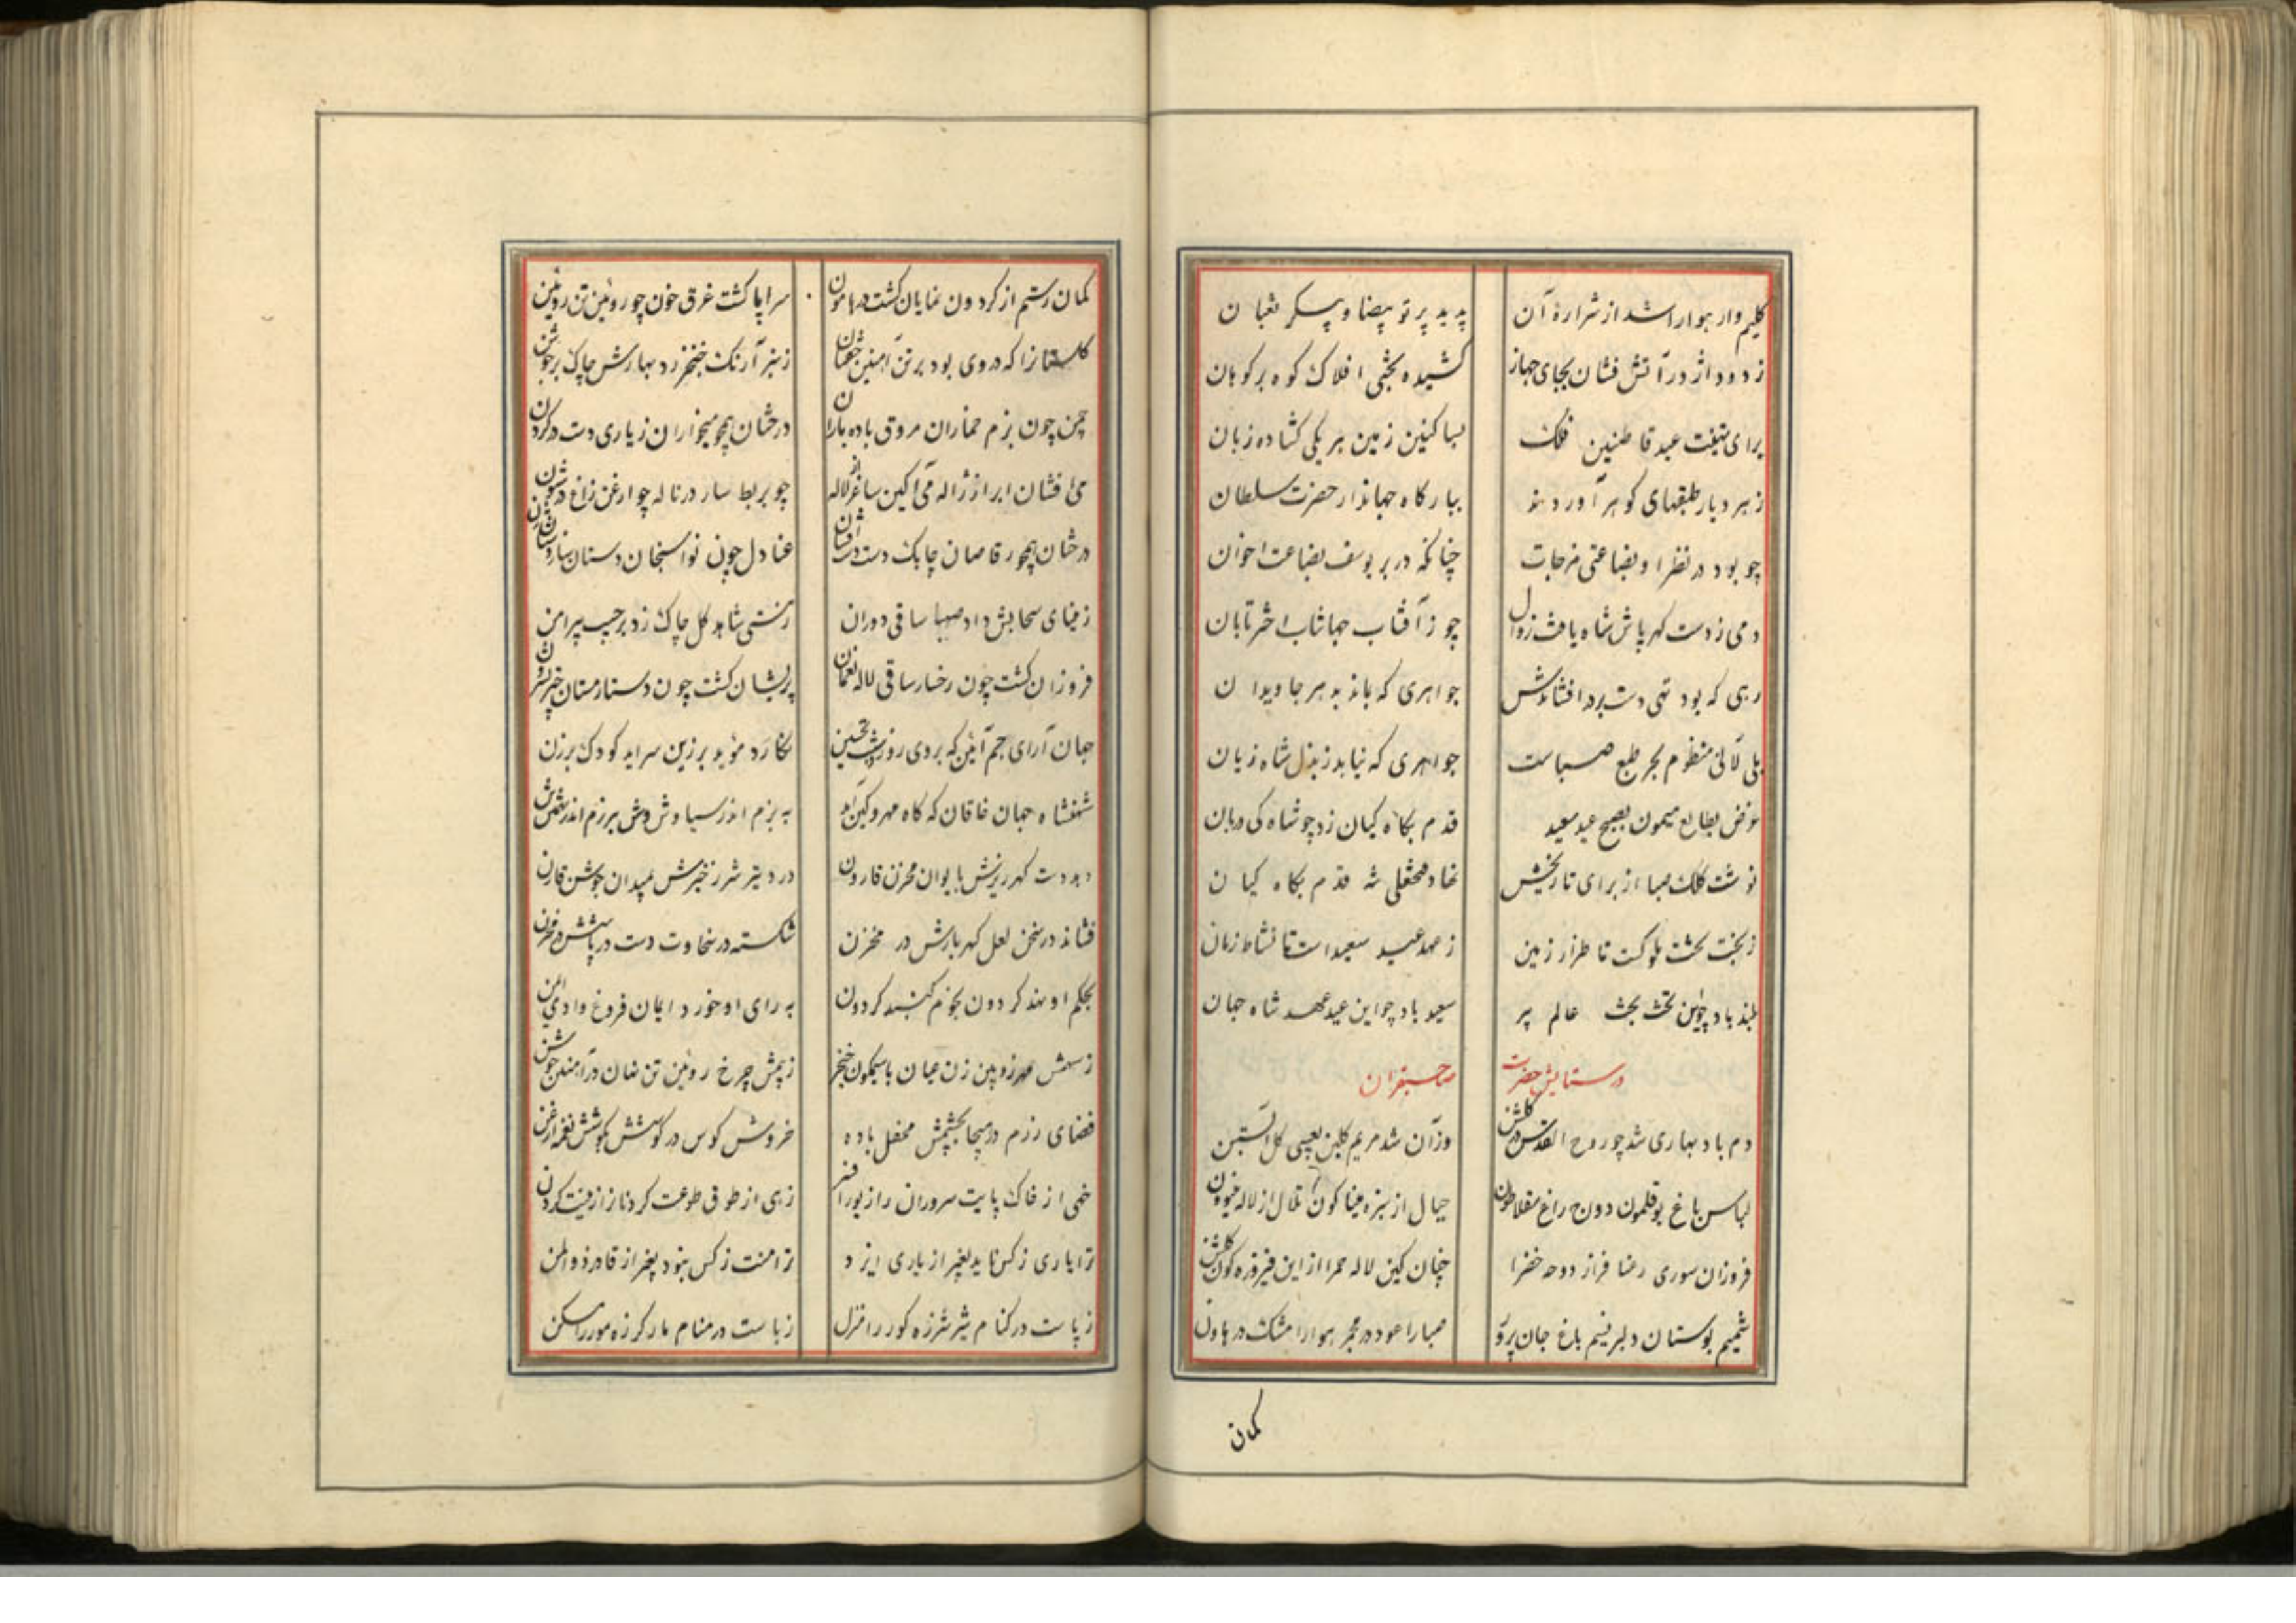 کلیم وار هوا را شد از شرارهٔ آن
پدید پرتو بیضا و پیکر ثعبان
ز دود اژدر آتش فشان بجای جهاز
کشیده بختی افلاک کوه بر کوهان
برای تهنیت عید قاطنین فلک
بساکنین زمین هر یکی کشاده زبان
ز هر دیار طبقهای کوهر آوردند
ببارکاه جهاندار حضرت سلطان
چو بود در نظر او بضاعتی مزجات
چنانکه در بر یوسف بضاعت اخوان
دمی ز دست کهرپاش شاه یافت زوال
چو ز آفتاب جهانتاب اختر تابان
رهی که بود تهی دست برد افشاندش
جواهری که بماند بدهر جاویدان
بلی لآلی منظوم بحر طبع صباست
جواهری که نیابد ز بذل شاه زیان
غرض بطالع میمون بصبح عید سعید
قدم بکاه کیان زد چو شاه کی دربان
نوشت کلک صبا از برای تاریخش
نهاد فتحعلی شه قدم بکاه کیان
ز بخت تخت ملوکت تا طراز زمین
ز مهد عید سعید است تا نشاط زمان
بلند باد چوین تخت بخت عالم پیر
سعید باد چو این عید عهد شاه جهان
در ستایش حضرت
صاحبقران
دم باد بهاری شد چو روح القدس در کلشن
وزآن شد مریم کلبن بعیسی کل آبستن
لباس باغ بوقلمون دواج راغ سقلاطون
جبال از سبزه مینا کون تلال از لاله
فروزان سوری رعنا فراز دوحه خضرا
چنان کین لاله حمرا از این فیروزه کون کلشن
شمیم بوستان دلبر نسیم باغ جان پرور
صبا را عود در مجمر هوا را مشک در هاون
کمان
کمان رستم از کردون نمایان کشت در هامون
سراپا کشت غرق خون چو روئین تن روئین
کلستانرا که در دی بود بر تن آهنین خفتان
ز نیرآرنک خنجر زد بهارش چاک بر جوشن
چمن چون بزم خماران مروق باده باران
درختان همچو میخواران ز یاری دست در کردن
می افشان ابر از ژاله می آکین ساغر لاله
چو بربط سار در ناله چو ارغن زاغ در شیون
درختان همچو رقاصان چابک دست دست افشان
عنادل چون نواسنجان دستان ساز دستان زن
ز مینای سحابش داد صهبا ساقی دوران
ز مستی شاهد کل چاک زد بر جیب پیراهن
فروزان کشت چون رخسار ساقی لاله نعمان
پریشان کشت چون دستار مستان خیری و سوسن
جهان آرای جم آئین که بر وی روز و شب تحسین
نکارد موبد برزین سراید کودک برزن
شهنشاه جهان خاقان که کاه مهر و کین آمد
به بزم اندر سیاوش وش برزم اندر تهمتن تن
دهد دست کهر ریزش بایوان مخزن قارون
درد تیر شرر خیزش بمیدان جوشن قارن
فشاند در سخن لعل کهربارش در مخزن
شکسته در سخاوت دست درپاشش در مخزن
بحکم او نهد کردون بخوم کنبد کردون
به رای او خورد ایمان فروغ وادی ایمن
ز سهمش مهر زوبین زن عیان با سیمکون خنجر
ز بیمش چرخ روئین تن نهان در آهنین جوشن
فضای رزم در هیجا بچشمش محفل باده
خروش کوس در کوشش بکوشش نغمه ارغن
خهی از خاک پایت سروران را زیور افسر
زهی از طوق طوعت کردنانرا زینت کردن
ترا یاری ز کس ناید بغیر از یاری ایزد
ترا منت ز کس نبود بغیر از قادر ذوالمن
ز پاست در کنام شیر شرزه کور را منزل
ز باست در منام مار کرزه مور را مسکن